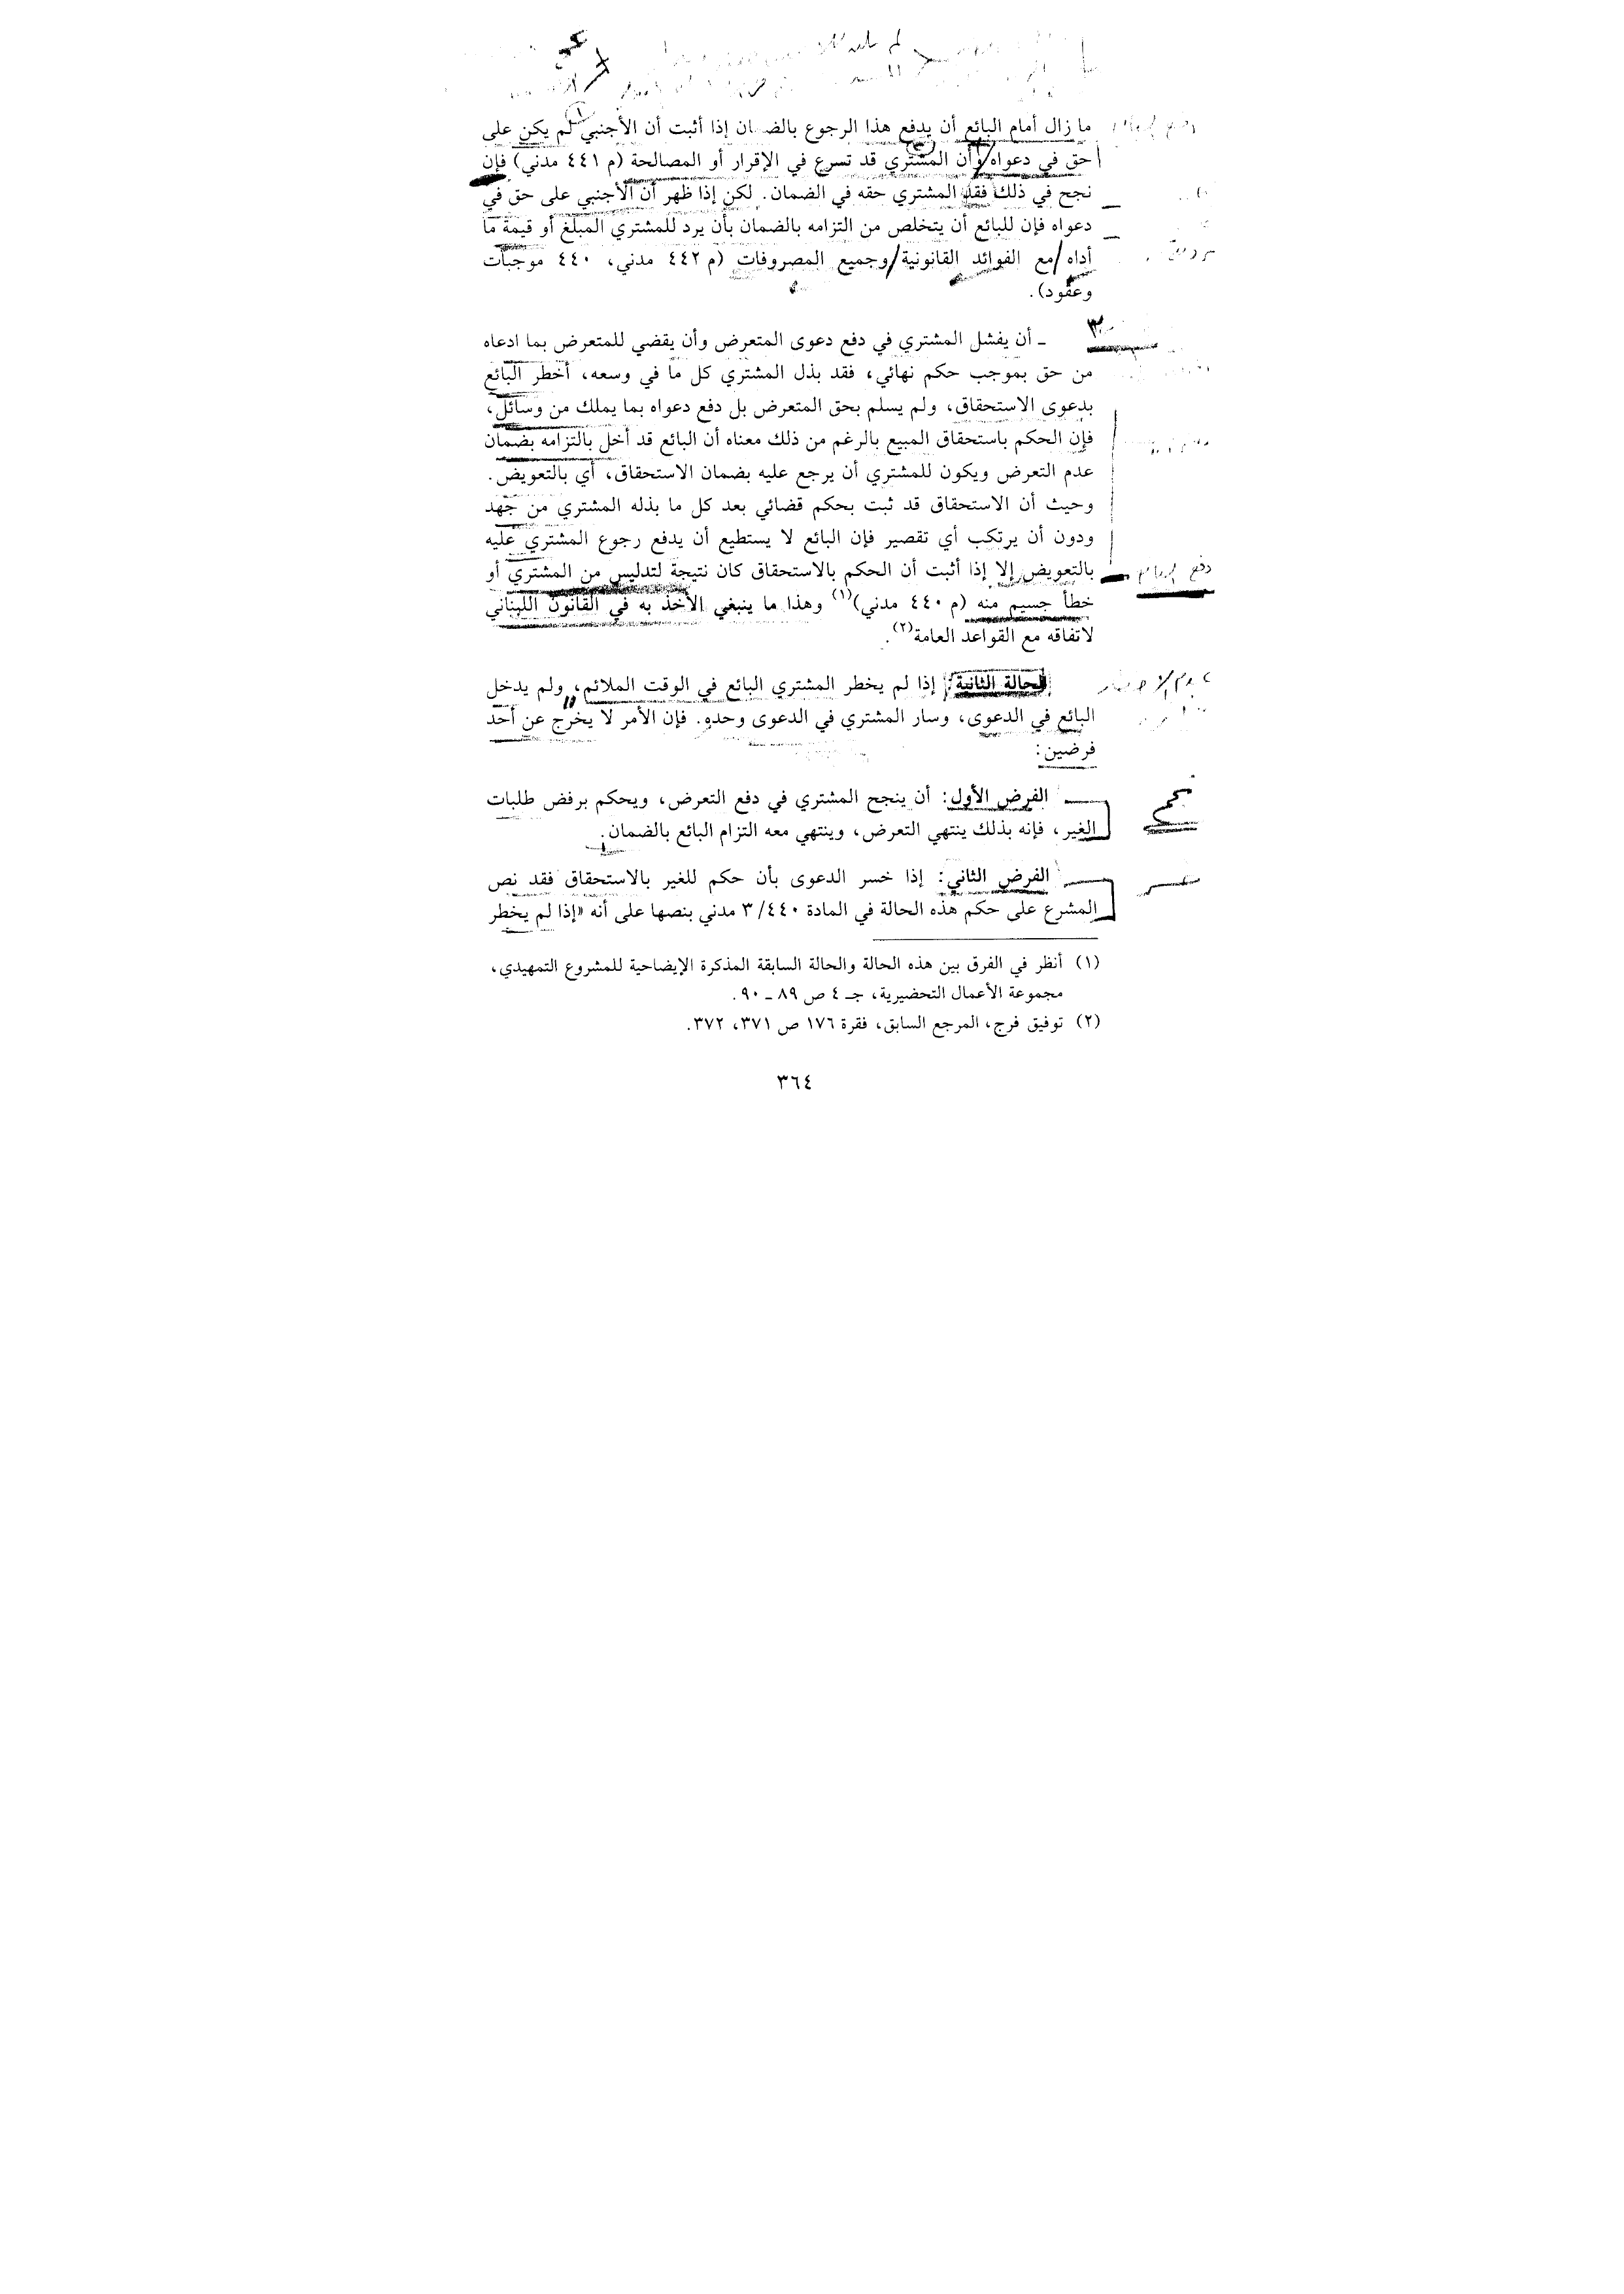 ما زال أمام البائع أن يدفع هذا الرجوع بالضمان إذا أثبت أن الأجنبي لم يكن على
حق في دعواه وأن المشتري قد تسرع في الإقرار أو المصالحة (م ٤٤١ مدني) فإن
نجح في ذلك فقد المشتري حقه في الضمان. لكن إذا ظهر أن الأجنبي على حق في
دعواه فإن للبائع أن يتخلص من التزامه بالضمان بأن يرد للمشتري المبلغ أو قيمة ما
أداه مع الفوائد القانونية وجميع المصروفات (م ٤٤٢ مدني، ٤٤٠ موجبات
وعقود).
٣ ـ أن يفشل المشتري في دفع دعوى المتعرض وأن يقضي للمتعرض بما ادعاه
من حق بموجب حكم نهائي، فقد بذل المشتري كل ما في وسعه، أخطر البائع
بدعوى الاستحقاق، ولم يسلم بحق المتعرض بل دفع دعواه بما يملك من وسائل،
فإن الحكم باستحقاق المبيع بالرغم من ذلك معناه أن البائع قد أخل بالتزامه بضمان
عدم التعرض ويكون للمشتري أن يرجع عليه بضمان الاستحقاق، أي بالتعويض.
وحيث أن الاستحقاق قد ثبت بحكم قضائي بعد كل ما بذله المشتري من جهد
ودون أن يرتكب أي تقصير فإن البائع لا يستطيع أن يدفع رجوع المشتري عليه
بالتعويض إلا إذا أثبت أن الحكم بالاستحقاق كان نتيجة لتدليس من المشتري أو
خطأ جسيم منه (م ٤٤٠ مدني)(١) وهذا ما ينبغي الأخذ به في القانون اللبناني
لاتفاقه مع القواعد العامة(٢).
الحالة الثانية: إذا لم يخطر المشتري البائع في الوقت الملائم، ولم يدخل
البائع في الدعوى، وسار المشتري في الدعوى وحده. فإن الأمر لا يخرج عن أحد
فرضين:
الفرض الأول: أن ينجح المشتري في دفع التعرض، ويحكم برفض طلبات
الغير، فإنه بذلك ينتهي التعرض، وينتهي معه التزام البائع بالضمان.
الفرض الثاني: إذا خسر الدعوى بأن حكم للغير بالاستحقاق فقد نص
المشرع على حكم هذه الحالة في المادة ٣/٤٤٠ مدني بنصها على أنه «إذا لم يخطر
(١) أنظر في الفرق بين هذه الحالة والحالة السابقة المذكرة الإيضاحية للمشروع التمهيدي،
مجموعة الأعمال التحضيرية، جـ ٤ ص ٨٩ ـ ٩٠.
(٢) توفيق فرج، المرجع السابق، فقرة ١٧٦ ص ٣٧١، ٣٧٢.
٣٦٤